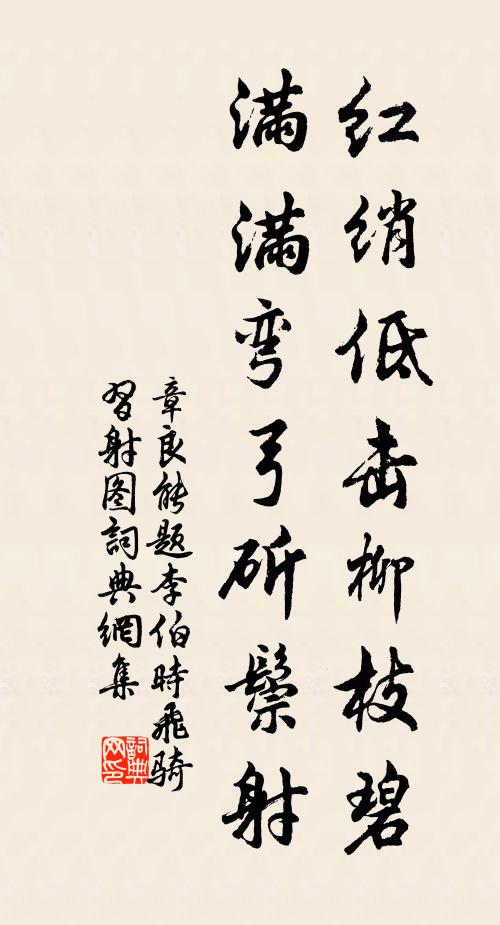 红绡低击柳枝碧
满满弯弓斫鬃射
章良能题李伯时飞骑
习射图词典网集
词典
网印